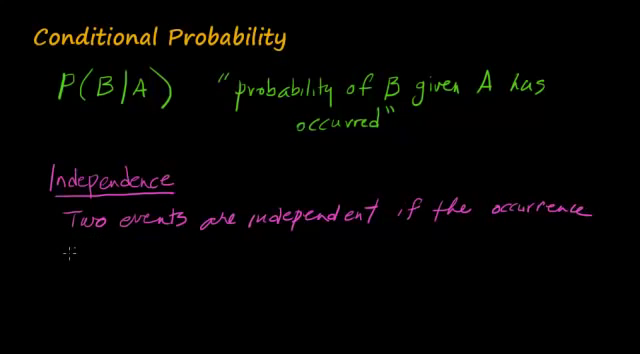 Conditional Probability
P(B/A) "probability of B given A has
occurred"
Independence
Two events are independent if the occurrence